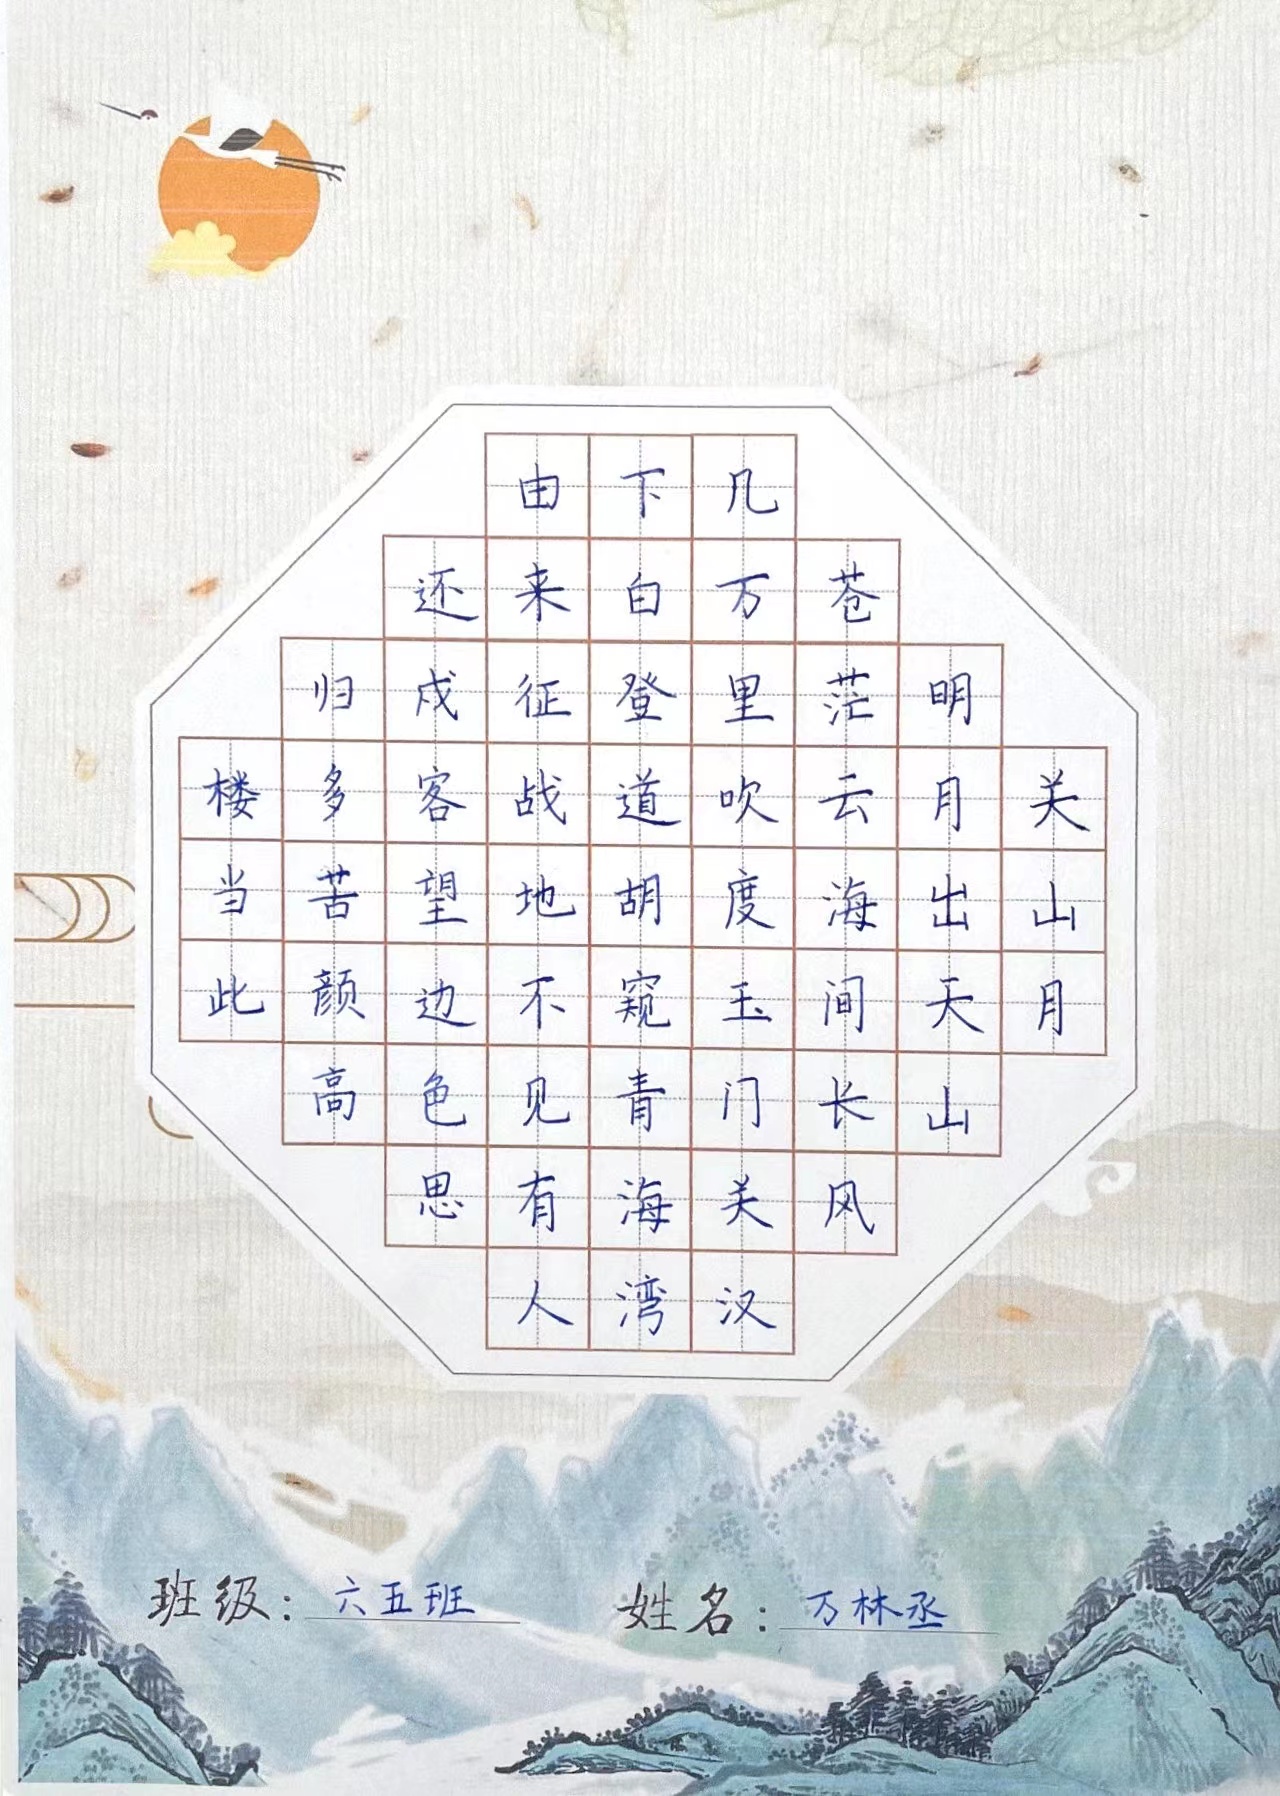 关山月
明月出天山
苍茫云海间长风
几万里吹度玉门关汉
下白登道胡窥青海湾
由来征战地不见有人
还戍客望边色思
归多苦颜高
楼当此
班级：六五班
姓名：万林丞